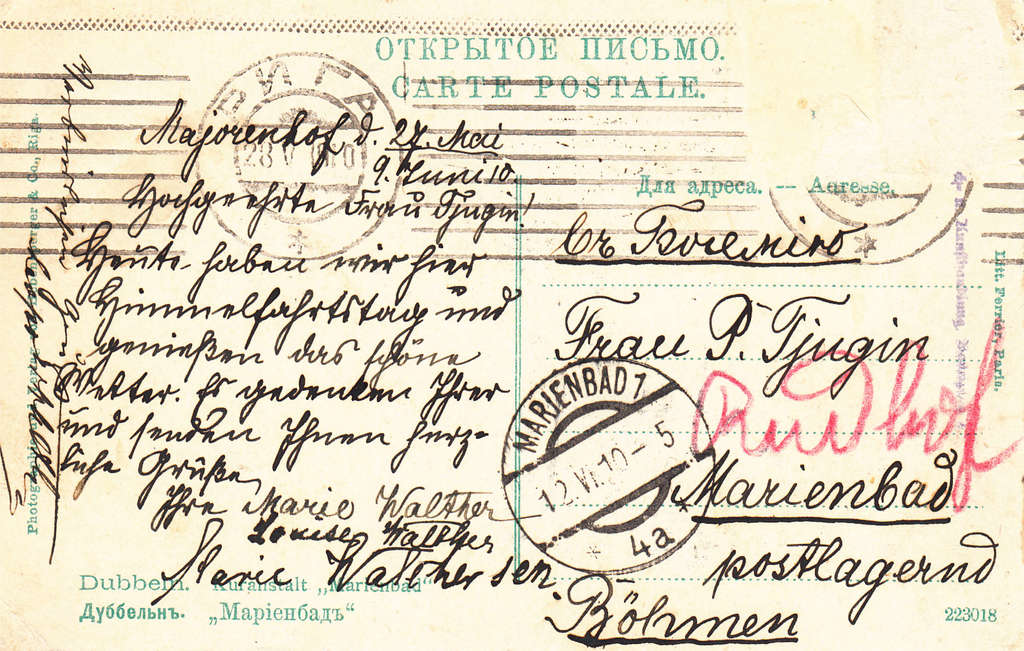 ОТКРЫТОЕ ПИСЬМО.
CARTE POSTALE.
РИГА
28 V
Majorenhof d. 27. Mai
9. Juni 10.
Hochgeehrte Frau Tjugin!
Heute haben wir hier
Himmelfahrtstag und
genießen das schöne
Wetter. Es gedenken Ihrer
und senden Ihnen herz-
liche Grüße
Ihre Marie Walther
Louise Walther
Marie Walther sen.
Для адреса. — Adresse.
въ Богемiю
Frau P. Tjugin
Marienbad
postlagernd
Böhmen
MARIENBAD 1
12.VI.10 - 5
* 4a *
Dubbeln. Kuranstalt „Marienbad"
Дуббельнъ. „Марiенбадъ"
223018
& Co., Riga.
Paris.